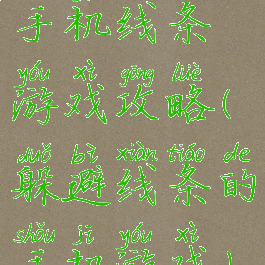 手机线条
yóu xì gōng lüè
游戏攻略(
duǒ bì xiàn tiáo de
躲避线条的
shǒu jī yóu xì
手机游戏)